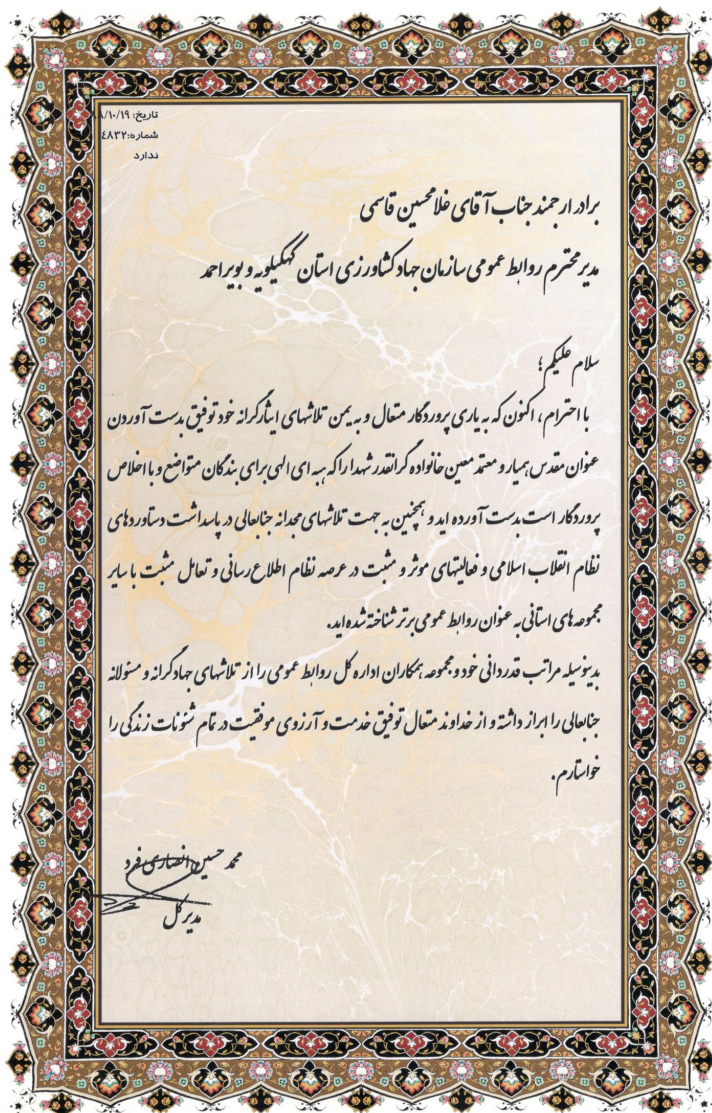 تاریخ: ۸/۱۰/۱۹
شماره:٤٨٣٢
ندارد
برادر ارجمند جناب آقای غلامحسین قاسمی
مدیر محترم روابط عمومی سازمان جهاد کشاورزی استان کهکیلویه و بویراحمد
سلام علیکم؛
با احترام، اکنون که به یاری پروردگار متعال و به یمن تلاشهای ایثارگرانه خود توفیق بدست آوردن
عنوان مقدس همیار و معتمد معین خانواده گرانقدر شهدا را که هبه ای الهی برای بندگان متواضع و با اخلاص
پروردگار است بدست آورده اید و همچنین به جهت تلاشهای مجدانه جنابعالی در پاسداشت دستاوردهای
نظام انقلاب اسلامی و فعالیتهای موثر و مثبت در عرصه نظام اطلاع رسانی و تعامل مثبت با سایر
مجموعه های استانی به عنوان روابط عمومی برتر شناخته شده اید.
بدینوسیله مراتب قدردانی خود و مجموعه همکاران اداره کل روابط عمومی را از تلاشهای جهادگرانه و مسئولانه
جنابعالی را ابراز داشته و از خداوند متعال توفیق خدمت و آرزوی موفقیت در تمام شئونات زندگی را
خواستارم.
محمد حسین انصاری فرد
مدیر کل